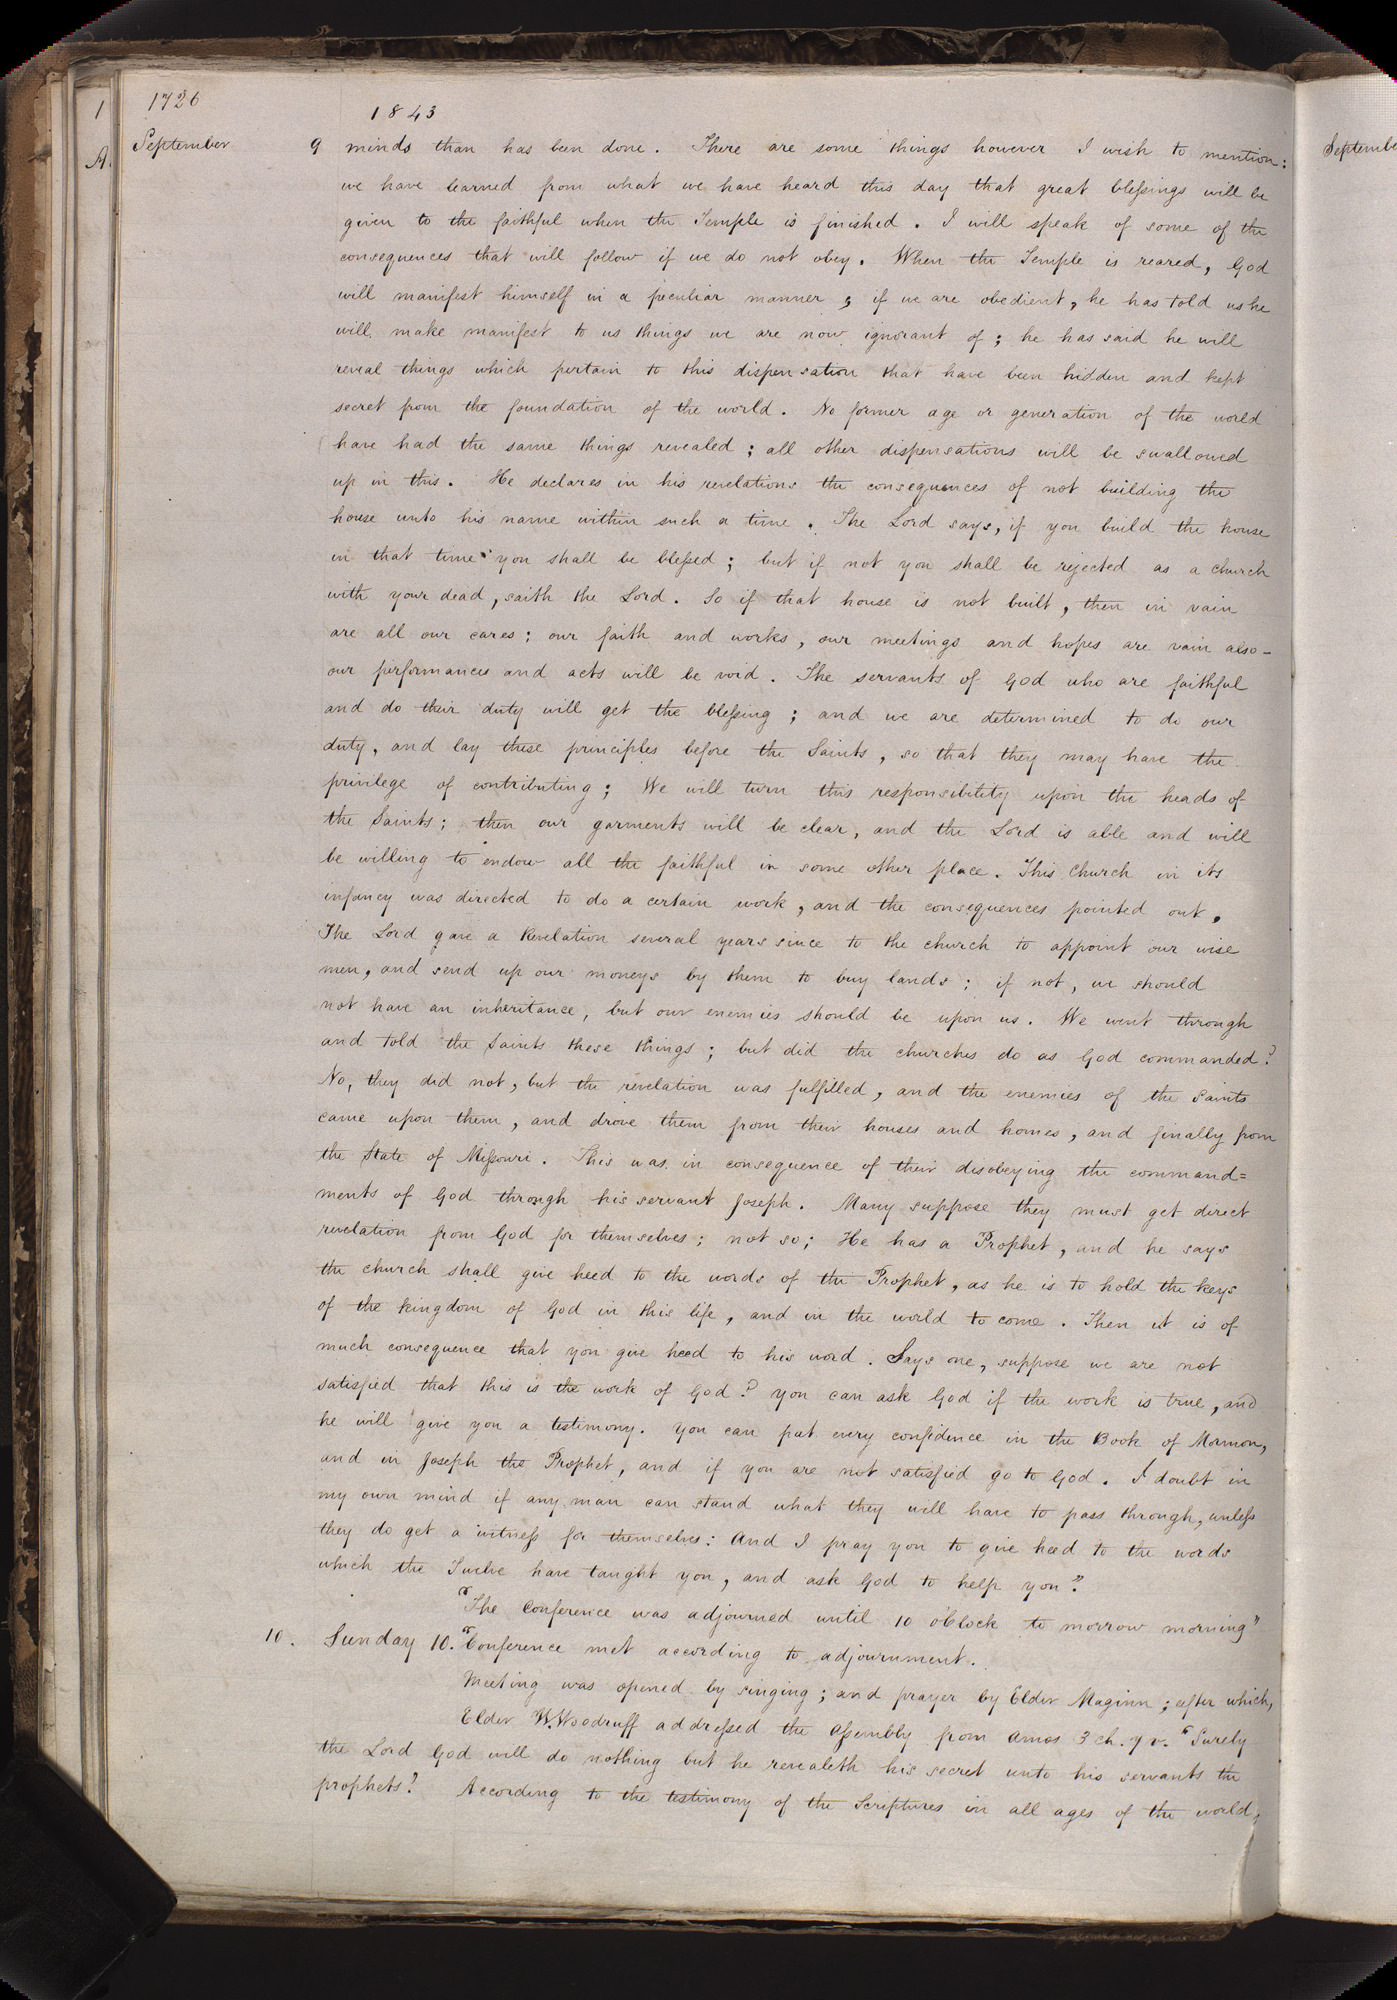 1726
1843
September 9 minds than has been done. There are some things however I wish to mention:
we have learned from what we have heard this day that great blessings will be
given to the faithful when the Temple is finished. I will speak of some of the
consequences that will follow if we do not obey. When the Temple is reared, God
will manifest himself in a peculiar manner; if we are obedient, he has told us he
will make manifest to us things we are now ignorant of; he has said he will
reveal things which pertain to this dispensation that have been hidden and kept
secret from the foundation of the world. No former age or generation of the world
have had the same things revealed; all other dispensations will be swallowed
up in this. He declares in his revelations the consequences of not building the
house unto his name within such a time. The Lord says, if you build the house
in that time you shall be blessed; but if not you shall be rejected as a church
with your dead, saith the Lord. So if that house is not built, then in vain
are all our cares; our faith and works, our meetings and hopes are vain also-
our performances and acts will be void. The servants of God who are faithful
and do their duty will get the blessing; and we are determined to do our
duty, and lay these principles before the Saints, so that they may have the
privilege of contributing; We will turn this responsibility upon the heads of
the Saints; then our garments will be clear, and the Lord is able and will
be willing to endow all the faithful in some other place. This Church in its
infancy was directed to do a certain work, and the consequences pointed out,
The Lord gave a Revelation several years since to the church to appoint our wise
men, and send up our moneys by them to buy lands; if not, we should
not have an inheritance, but our enemies should be upon us. We went through
and told the Saints these things; but did the churches do as God commanded?
No, they did not, but the revelation was fulfilled, and the enemies of the saints
came upon them, and drove them from their houses and homes, and finally from
the State of Missouri. This was in consequence of their disobeying the command=
ments of God through his servant Joseph. Many suppose they must get direct
revelation from God for themselves; not so; He has a Prophet, and he says
the church shall give heed to the words of the Prophet, as he is to hold the keys
of the kingdom of God in this life, and in the world to come. Then it is of
much consequence that you give heed to his word. Says one, suppose we are not
satisfied that this is the work of God? You can ask God if the work is true, and
he will give you a testimony. You can put every confidence in the Book of Mormon,
and in Joseph the Prophet, and if you are not satisfied go to God. I doubt in
my own mind if any man can stand what they will have to pass through, unless
they do get a witness for themselves: And I pray you to give heed to the words
which the Twelve have taught you, and ask God to help you".
"The Conference was adjourned until 10 o'Clock to morrow morning"
10. Sunday 10. "Conference met according to adjournment.
Meeting was opened by singing; and prayer by Elder Maginn; after which,
Elder W. Woodruff addressed the assembly from Amos 3 ch. 7 v. "Surely
the Lord God will do nothing but he revealeth his secret unto his servants the
prophets? According to the testimony of the Scriptures in all ages of the world,
1
A.